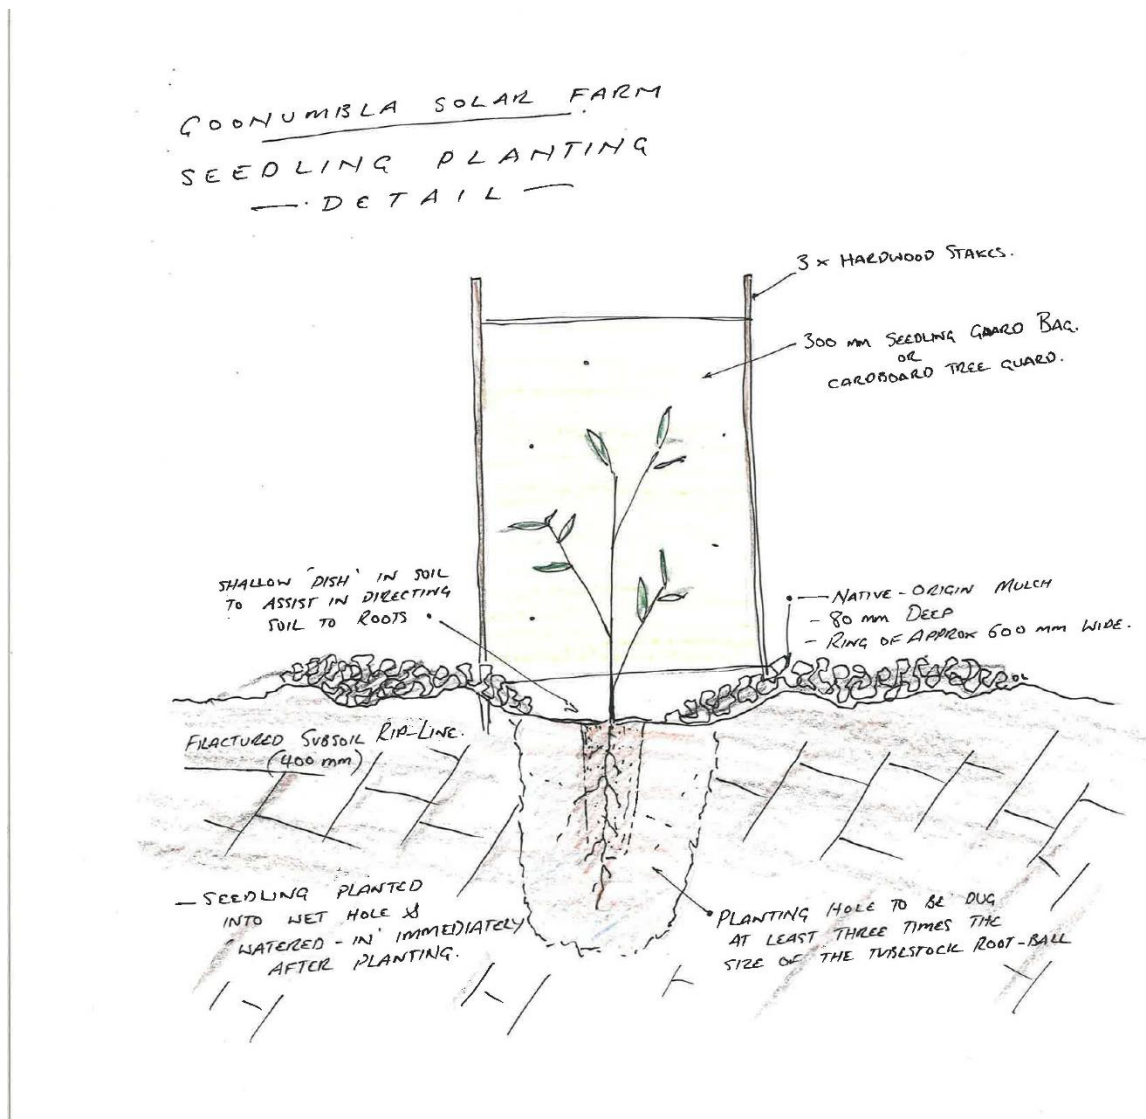 GOONUMBLA SOLAR FARM
SEEDLING PLANTING
— DETAIL —
3 x HARDWOOD STAKES.
300 mm SEEDLING GUARD BAG.
OR
CARDBOARD TREE GUARD.
SHALLOW 'DISH' IN SOIL
TO ASSIST IN DIRECTING
SOIL TO ROOTS
— NATIVE-ORIGIN MULCH
- 80 mm DEEP
- RING OF APPROX 600 mm WIDE.
FRACTURED SUBSOIL RIP-LINE.
(400 mm)
— SEEDLING PLANTED
INTO WET HOLE &
'WATERED-IN' IMMEDIATELY
AFTER PLANTING.
PLANTING HOLE TO BE DUG
AT LEAST THREE TIMES THE
SIZE OF THE TUBESTOCK ROOT-BALL